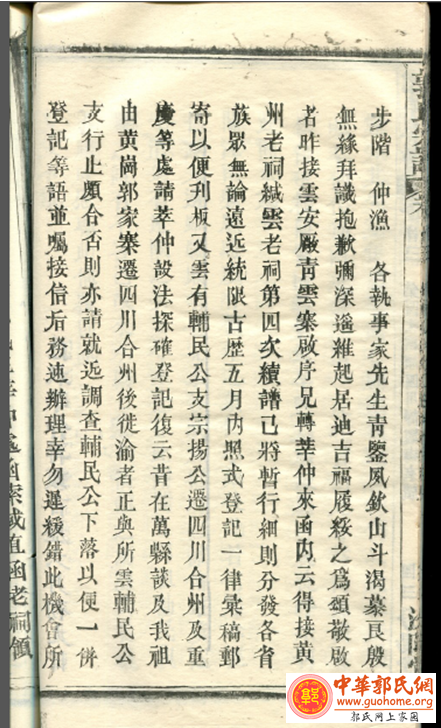 步階　仲漁　各執事家先生青鑒夙欽山斗渴慕良殷
無緣拜識抱歉彌深遙維起居迪吉福履綏之為頌敬啟
者昨接雲安廠青雲寨啟序兄轉莘仲來函內云得接黃
州老祠緘雲老祠第四次續譜已將暫行細則分發各省
族眾無論遠近統限古歷五月內照式登記一律彙稿郵
寄以便刋板又雲有輔民公支宗揚公遷四川合州及重
慶等處請莘仲設法探確登記復云昔在萬縣談及我祖
由黃崗郭家寨遷四川合州後徙渝者正與所雲輔民公
支行止頗合否則亦請就近調查輔民公下落以便一併
登記等語並囑接信后務速辦理幸勿遲緩錯此機會所
函老祠領
中華郭氏網
www.guohome.org
郭氏网上家园